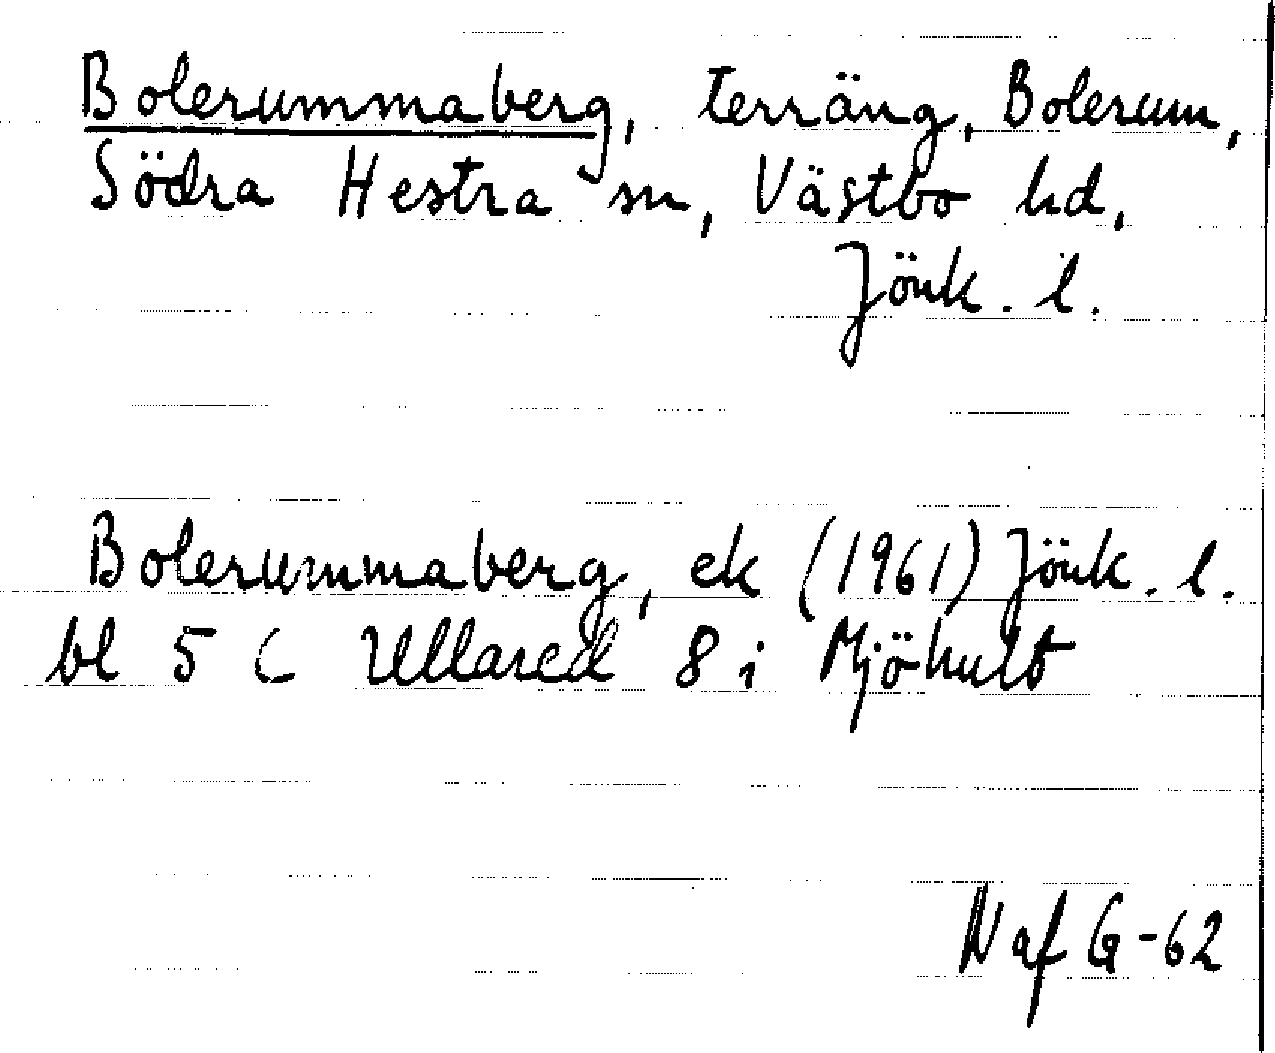 Bolerummaberg, terräng, Bolerum,
Södra Hestra sn, Västbo hd,
Jönk. l.
Bolerummaberg, ek (1961) Jönk. l.
bl 5 C Ullared 8 i Mjöhult
N af G-62